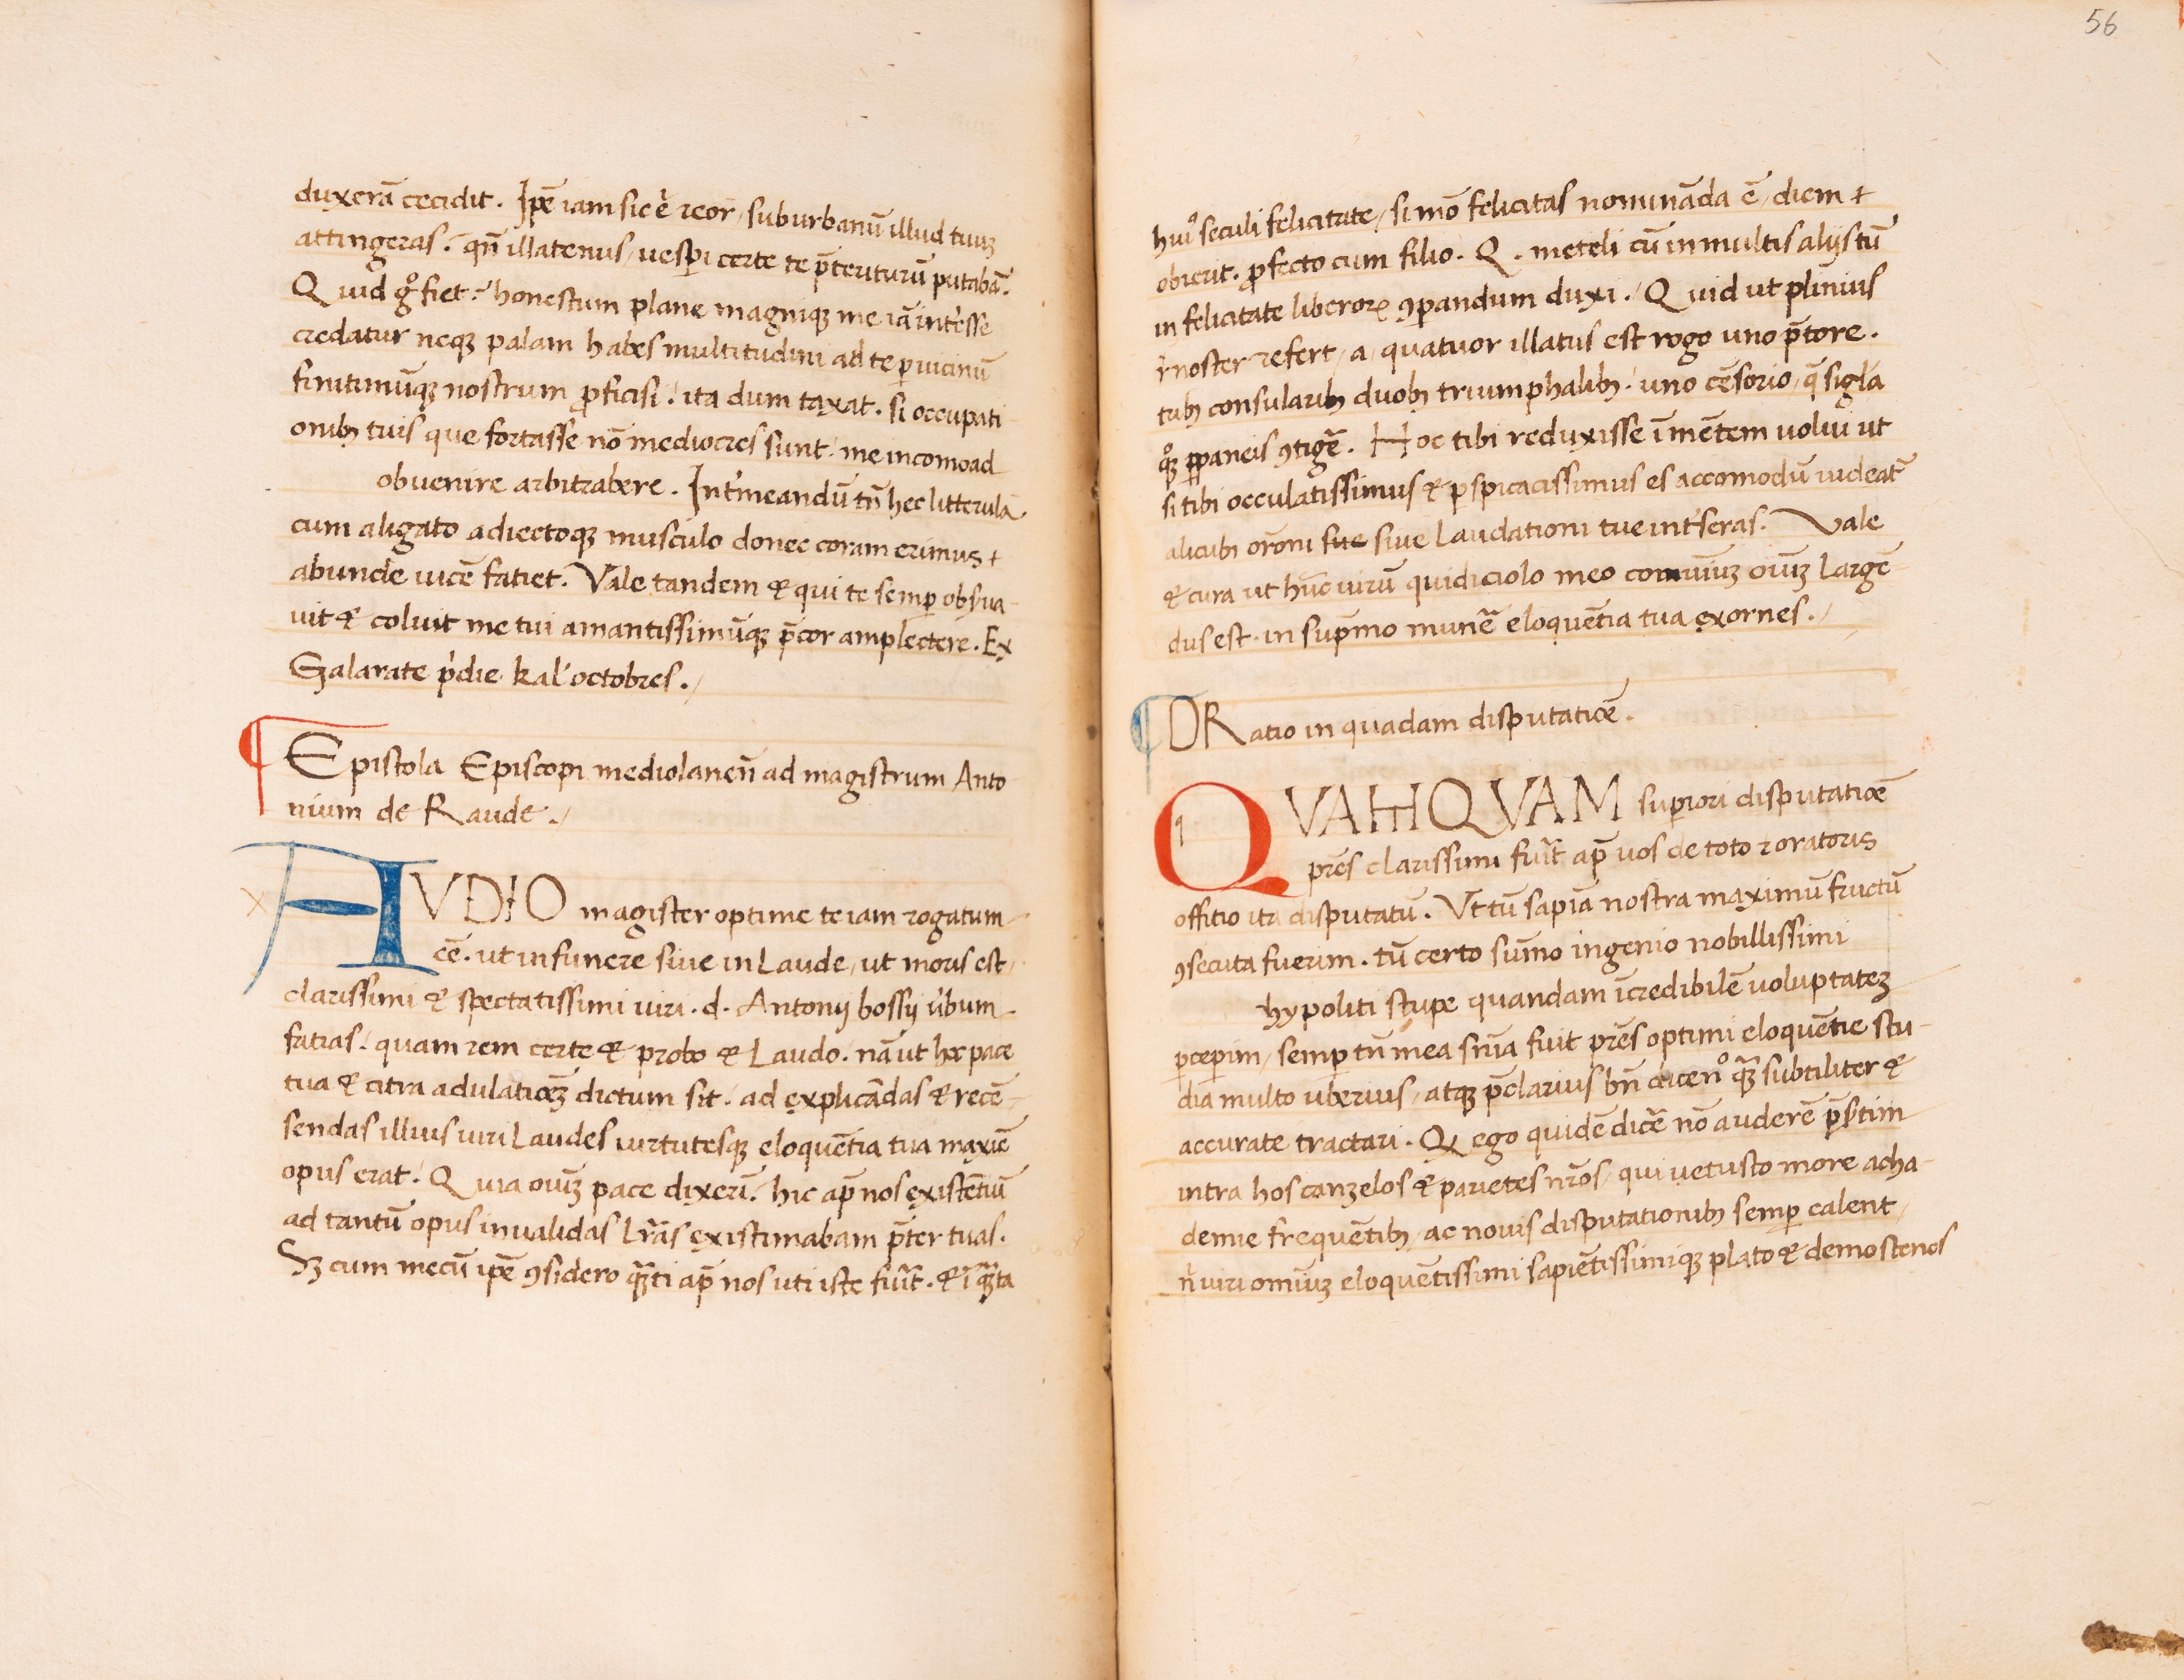 duxerā cecidit. Ipē iam sic ē reor, suburbanū illud tuuꝫ
attingeras. qn̄ illatenus, uesꝑi certe te p̄teriturū putabā.
Quid gͦ fiet? honestum plane magniqꝫ me iā int̓esse
credatur neqꝫ palam habes multitudini ad te ꝑ uicinū
finitimūqꝫ nostrum ꝓficisi. ita dum taxat. si occupati
onibꝫ tuis que fortasse nō mediocres sunt. me incomoad
obuenire arbitrabere. Int̓meandū tn̄ hec litterula
cum aligato adiectoqꝫ musculo donec coram erimus +
abunde uicē fatiet. Vale tandem & qui te semꝑ obẜua
uit & coluit me tui amantissimūqꝫ p̄cor amplectere. Ex
Galarate p̓die kal' octobres.
Epistola Episcopi mediolanen̄ ad magistrum Anto
nium de Raude.
AVDIO magister optime te iam rogatum
eē. ut in funere siue in Laude, ut moris est,
clarissimi & spectatissimi uiri. d. Antonij bossij ûbum
fatias. quam rem certe & probo & Laudo. nā ut hoc pace
tua & citra adulatiōeꝫ dictum sit. ad explicādas & recē
sendas illius uiri Laudes uirtutesqꝫ eloquētia tua maxīe
opus erat. Quia oīuꝫ pace dixerī. hic ap̄ nos existētiū
ad tantū opus inualidas Lr̄as existimabam p̄ter tuas.
Sꝫ cum mecū ipē ꝯsidero qꝫ̄ti ap̄ nos uti iste fuit̄. & ī qꝫ̄ta
56
huiꝰ seculi felicitate, si mō felicitas nomināda ē, diem +
obierit. ꝓfecto cum filio. Q. meteli cū in multis alijs tū
in felicitate liberoꝝ ꝯparandum duxi. Quid ut plinius
noster refert, a, quatuor illatus est rogo uno p̄tore.
tribꝫ consularibꝫ duobꝫ triumphalibꝫ. uno cēsorio, q̄ sigl'a
Hoc tibi reduxisse ī mētem uolui ut
si tibi occulatissimus & ꝑspicacissimus es accomodū uideat̄
alicubi orōni sue siue Laudationi tue int̓seras. Vale
& cura ut hūc uirū qui diciolo meo comuīuꝫ oīuꝫ Largē
dus est. in sup̄mo munē eloquētia tua exornes.
ORatio in quadam disputatiōe.
QVAMQVAM suꝑiori disputatiōe
pr̄es clarissimi fuit̄ ap̄ uos de toto roratoris
offitio ita disputatū. Vt tū sapīa nostra maximū fructū
ꝯsecuta fuerim. tū certo sūmo ingenio nobillissimi
hypoliti stupe quandam īcredibilē uoluptateꝫ
ꝑceperim, semꝑ tn̄ mea sn̄ia fuit pr̄es optimi eloquētie stu
dia multo uberius, atqꝫ p̄clarius bn̄ dicenͦ qꝫ̄ subtiliter &
accurate tractari. Qꝫ ego quidē dicē nō auderē p̄ẜtim
intra hos canzelos & parietes nr̄os, qui uetusto more acha
demie frequētibꝫ, ac nouis disputationibꝫ semꝑ calent,
n̄ uiri omīuꝫ eloquētissimi sapiētissimiqꝫ plato & demostenos